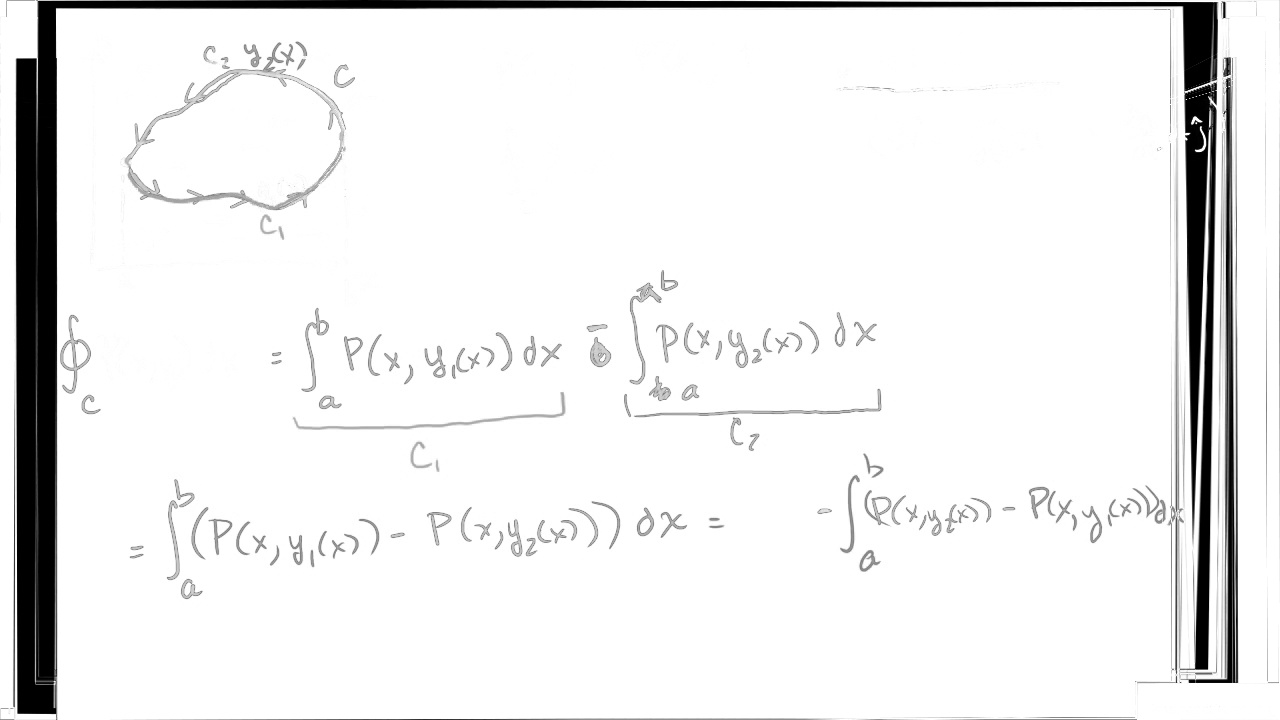 C₂ y₂(x) C
+ ĵ
C₁
∮_C = ∫_a^b P(x, y₁(x)) dx - ∫_a^b P(x, y₂(x)) dx
C₁ C₂
= ∫_a^b (P(x, y₁(x)) - P(x, y₂(x))) dx = - ∫_a^b (P(x, y₂(x)) - P(x, y₁(x))) dx